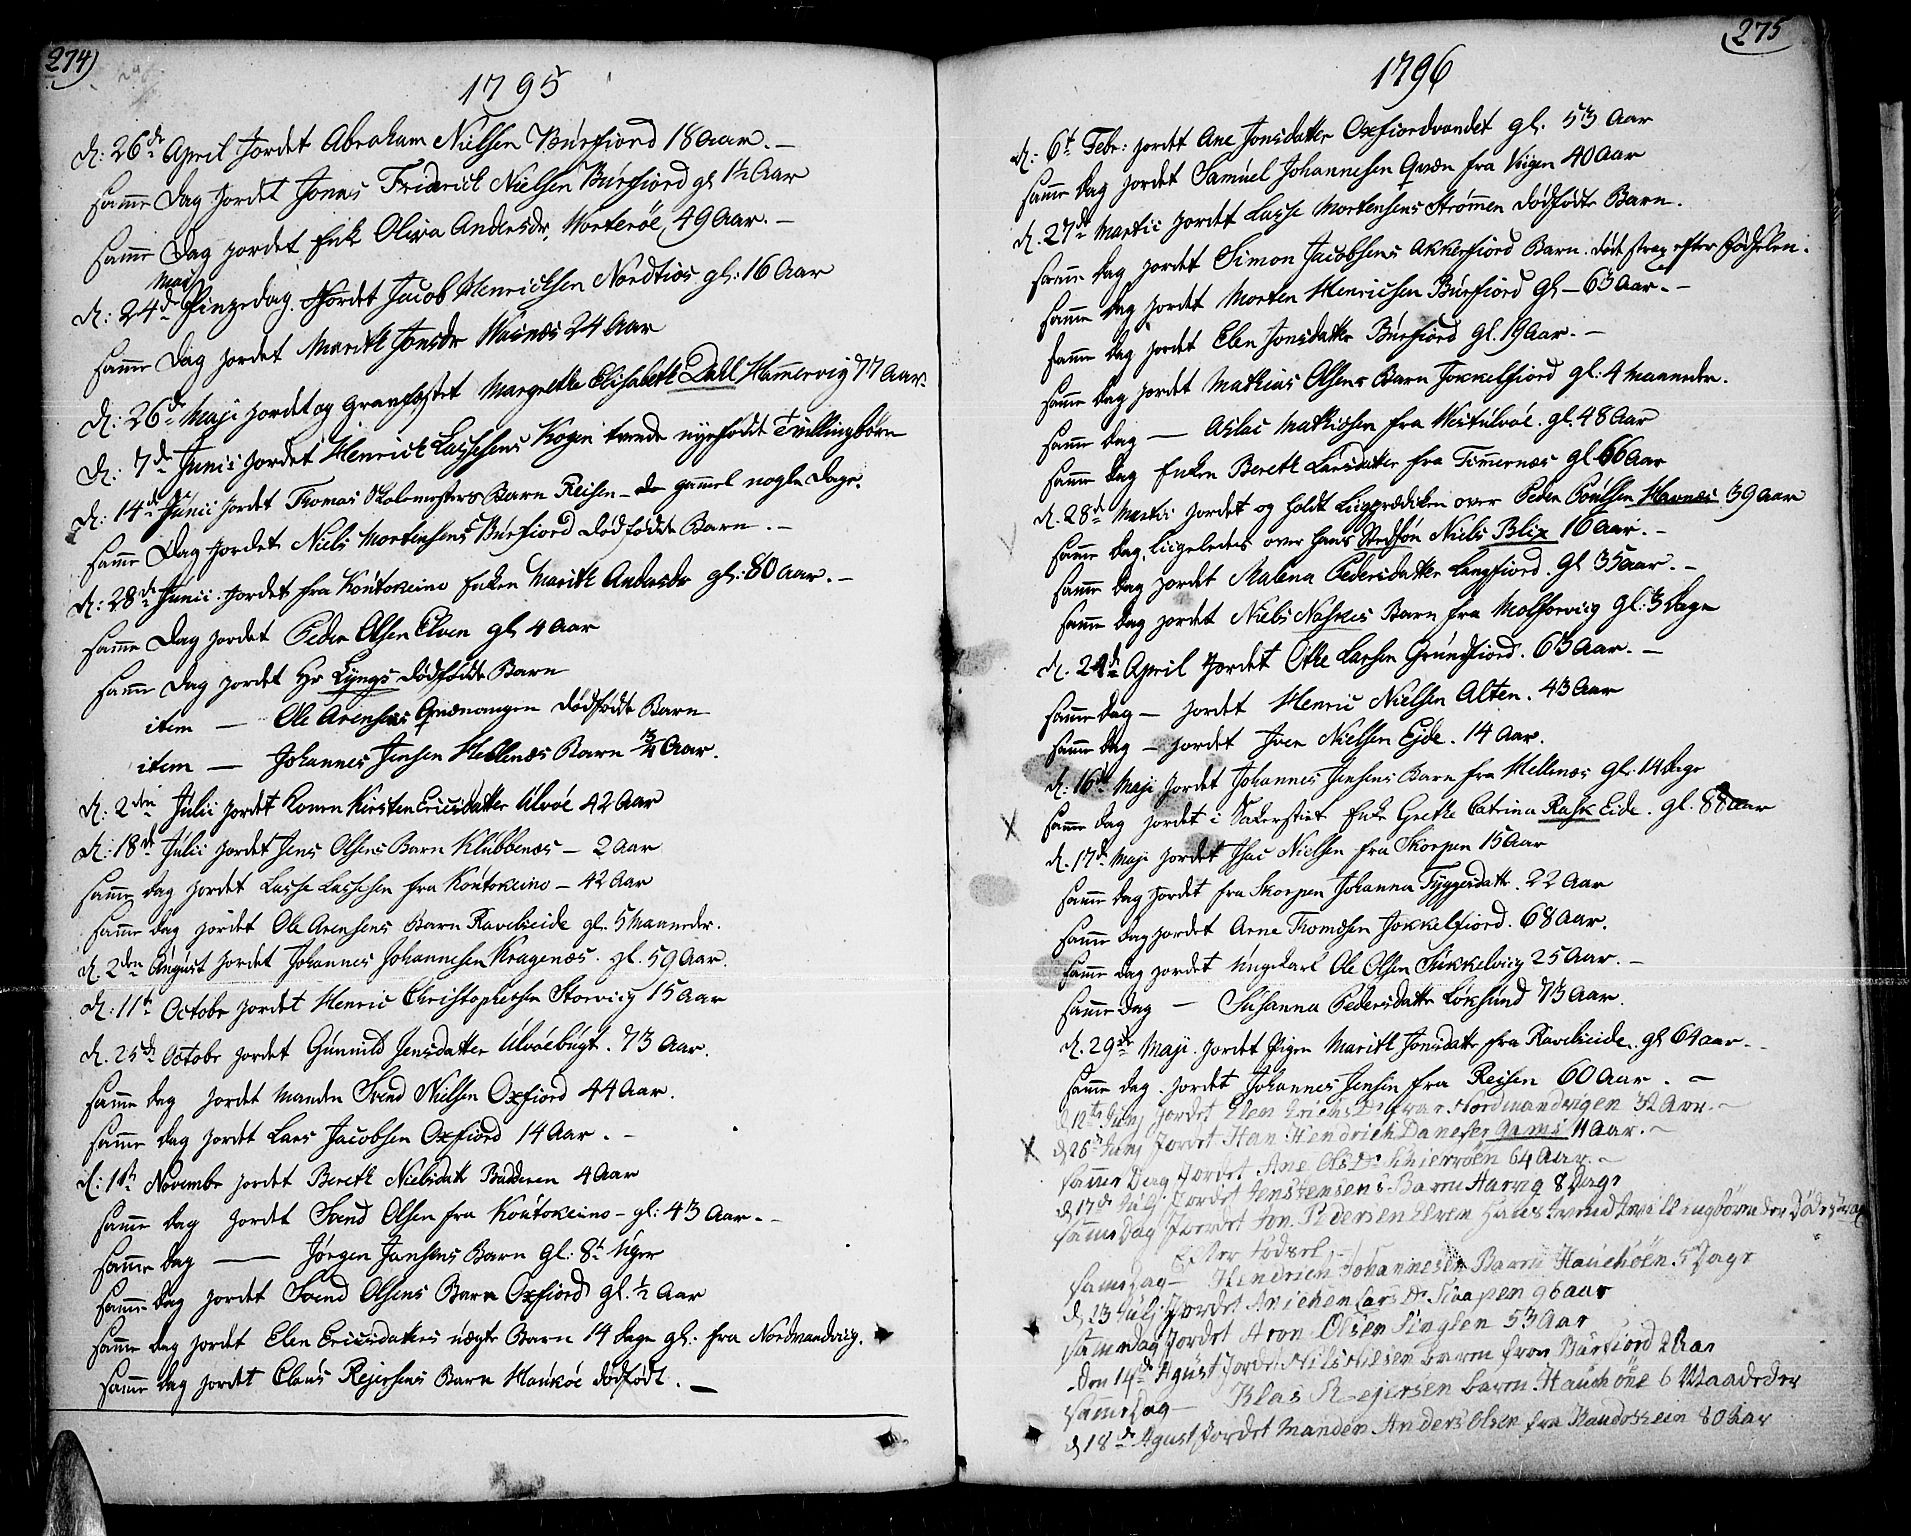 274)
1795
d: 26de April Jordet Abraham Nielsen Burfiord 18 Aar.
Samme Dag Jordet Jonas Friderick Nielsen Burfiord gl 1½ Aar
Samme Dag jordet Enke Oliva Andersdr, Worterøe, 49 Aar.
Maij
d: 24de Pinzedag. Jordet Jacob Henrichsen Nordtios gl: 16 Aar
Samme Dag jordet Marith Jonsdr Wasnæs 24 Aar
d: 26de Maji jordet og Gravfæstet Margrethe Elisabeth Dahl Hamervig 77 Aar.
d: 7de Junii jordet Henrick Lassesens Kogen tvende nyefødde Tvillingbørn
d: 14de Junii jordet Thomas Skolemesters Barn Reisen - gammel nogle Dage.
Samme Dag jordet Niels Mortensens Burfiord dødfødde Barn.
d: 28de Junii. jordet fra Koutokeino Enken Marith Andersdr gl: 80 Aar.
Samme Dag jordet Peder Olsen Elven gl 4 Aar
Samme Dag jordet Hr Lyngs dødfødde Barn
item — Ole Arensens Qvænangen dødfødde Barn
item — Johannes Jensen Mellenæs Barn ¾ Aar.
d: 2den Julii jordet Konen Kirsten Ericsdatter Ulvøe 42 Aar
d: 18de Julii jordet Jens Olsens Barn Klubbenæs — 2 Aar
Samme dag jordet Lasse Lassesen fra Koutokeino — 42 Aar
Samme dag jordet Ole Arensens Barn Ravelseide gl. 5 Maaneder.
d. 2den August jordet Johannes Johannesen Kragenæs. gl. 59 Aar.
d: 11te Octobr jordet Henric Christophersen Storvig 15 Aar
d. 25de Octobr jordet Gunnild Jensdatter Ulvøebugt. 73 Aar.
Samme dag jordet Manden Svend Nielsen Oxfiord 44 Aar.
Samme dag jordet Lars Jacobsen Oxfiord 14 Aar.
d: 1ste Novembr jordet Bereth Nielsdatt Badderen 4 Aar
Samme dag jordet Svend Olsen fra Koutokeino — gl: 43 Aar.
Samme dag — Jørgen Jansens Barn gl: 8t Uger
Samme dag jordet Svend Olsens Barn Oxfiord gl. ½ Aar
Samme dag jordet Elen Ericsdatters uægte Barn 14 dage gl: fra Nordmandvig.
Samme dag jordet Claus Rejersens Barn Haukøe dødfødt.
275
1796
d: 6t Febr: jordet Ane Jonsdatter Oxfiordvandet gl. 53 Aar
Samme dag jordet Samuel Johannesen Qvæn fra Vigen 40 Aar
d. 27de Martii jordet Lasse Mortensens Strømmen dødfødte Barn.
Samme dag jordet Simon Jacobsens Akkerfiord Barn. død strax efter Fødselen.
Samme dag jordet Morten Henricsen Burfiord gl — 63 Aar.
Samme dag jordet Elen Jonsdatter Burfiord gl. 19 Aar.
Samme dag jordet Mathias Olsens Barn Jokkelfiord gl: 4 Maaneder.
Samme dag — Aslac Mathisen fra Westulvøe. gl. 48 Aar
Samme dag Enken Bereth Larsdatter fra Timmernæs gl 66 Aar
d. 28de Martii jordet og holdt Liigprædiken over Peder Povelsen Havnæs 39 Aar
Samme dag, ligeledes over hans Stedsøn Niels Blix 16 Aar.
Samme dag jordet Malena Pedersdatter Langfiord. gl 35 Aar.
Samme dag jordet Niels Naskes Barn fra Molsorvig gl: 3 Dage
d. 24de April jordet Othe Larsen Grundfiord. 63 Aar.
Samme dag — jordet Henric Nielsen Alten. 43 Aar
Samme dag — jordet Iver Nielsen Ejde. 14 Aar.
d: 16de Maji jordet Johannes Jensens Barn fra Mellenæs gl: 14 dage
Samme dag jordet i Sakerstiet Enke Grethe Catrina Rask Eide. gl. 87 Aar
d. 17de Maji jordet Isac Nielsen fra Skorpen 15 Aar
Samme dag jordet fra Skorpen Johanna Tyggesdatt. 22 Aar
Samme dag jordet Arne Thomesen Jokkelfiord. 68 Aar.
Samme dag jordet Ungkarl Ole Olsen Sukkelvig 25 Aar.
Samme dag — Susanna Pedersdatter Løksund 73 Aar.
d. 29de Maji. jordet Pigen Marith Jonsdatt fra Ravelseide. gl 64 aar.
Samme dag. jordet Johannes Jensen fra Reisen 60 Aar.
d 12te Junj jordet Elen Erichs Dr fra Nordmandvigen 32 Aar.
d 26de Junj Jordet Han Hendrich Danefer Gams 11 Aar.
Samme Dag Jordet Ane Ols Dr Skierrøen 64 Aar.
d 17de Julj Jordet Jens Jensens Barn Harvig 8 Dage
Samme Dag Jordet Jon Pedersen Elven Hans tvende tvillingbørn der døde strax
Efter Fødsel
Samme Dag — Hendrich Johannesen Barn Hauchøen 5 Dage
d, 23 Julj Jordet Anichen Lars Dr Staapen 96 aar
Samme dag Jordet Aron Olsen Singlen 53 Aar
den 14de Agust Jordet Nils Nilsen barn fra Burfiord 2 Aar
Samme Dag — Klas Rejersen barn Hauchöne 6 Maaneder
d 18de Agust Jordet Manden Anders Olsen fra Kaudokein 80 Aar